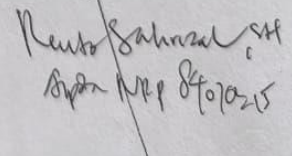 Rento Sahrizal, SH
Aipda NRP 84070215